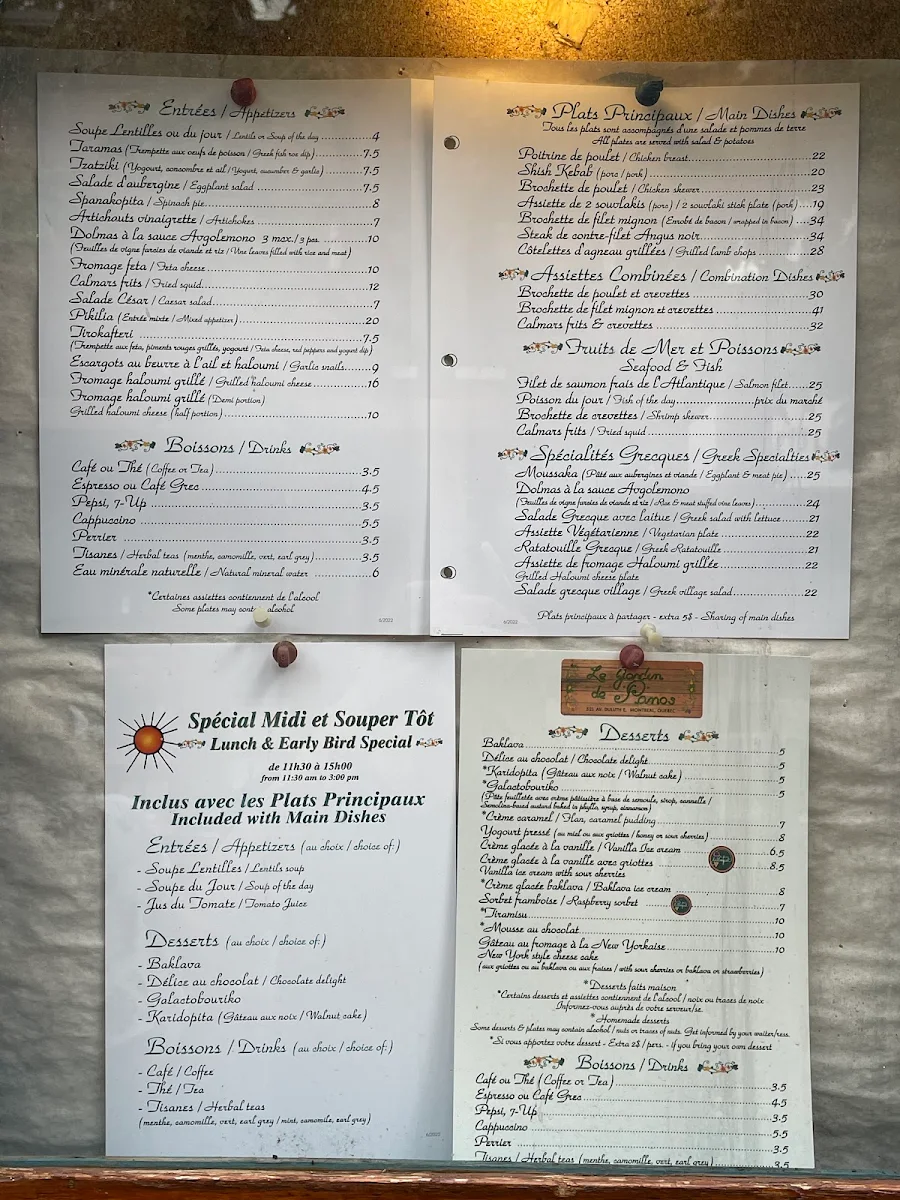 Entrées / Appetizers
Soupe Lentilles ou du jour / Lentils or Soup of the day 4
Taramas (Trempette aux oeufs de poisson / Greek fish roe dip) 7.5
Tzatziki (Yogourt, concombre et ail / Yogurt, cucumber & garlic) 7.5
Salade d'aubergine / Eggplant salad 7.5
Spanakopita / Spinach pie 8
Artichauts vinaigrette / Artichokes 7
Dolmas à la sauce Avgolemono 3 mcx./3 pcs. 10
(Feuilles de vigne farcies de viande et riz / Vine leaves filled with rice and meat)
Fromage feta / Feta cheese 10
Calmars frits / Fried squid 12
Salade César / Caesar salad 7
Pikilia (Entrée mixte / Mixed appetizer) 20
Tirokafteri 7.5
(Trempette aux feta, piments rouges grillés, yogourt / Feta cheese, red peppers and yogurt dip)
Escargots au beurre à l'ail et haloumi / Garlic snails 9
Fromage haloumi grillé / Grilled haloumi cheese 16
Fromage haloumi grillé (Demi portion)
Grilled haloumi cheese (half portion) 10
Boissons / Drinks
Café ou Thé (Coffee or Tea) 3.5
Espresso ou Café Grec 4.5
Pepsi, 7-Up 3.5
Cappuccino 5.5
Perrier 3.5
Tisanes / Herbal teas (menthe, camomille, vert, earl grey) 3.5
Eau minérale naturelle / Natural mineral water 6
*Certaines assiettes contiennent de l'alcool
Some plates may cont alcohol
6/2022
Plats Principaux / Main Dishes
Tous les plats sont accompagnés d'une salade et pommes de terre
All plates are served with salad & potatoes
Poitrine de poulet / Chicken breast 22
Shish Kebab (porc / pork) 20
Brochette de poulet / Chicken skewer 23
Assiette de 2 souvlakis (porc) / 2 souvlaki stick plate (pork) 19
Brochette de filet mignon (Enrobé de bacon / wrapped in bacon) 34
Steak de contre-filet Angus noir 34
Côtelettes d'agneau grillées / Grilled lamb chops 28
Assiettes Combinées / Combination Dishes
Brochette de poulet et crevettes 30
Brochette de filet mignon et crevettes 41
Calmars frits & crevettes 32
Fruits de Mer et Poissons
Seafood & Fish
Filet de saumon frais de l'Atlantique / Salmon filet 25
Poisson du jour / Fish of the day prix du marché
Brochette de crevettes / Shrimp skewer 25
Calmars frits / Fried squid 25
Spécialités Grecques / Greek Specialties
Moussaka (Pâté aux aubergines et viande / Eggplant & meat pie) 25
Dolmas à la sauce Avgolemono
(Feuilles de vigne farcies de viande et riz / Rice & meat stuffed vine leaves) 24
Salade Grecque avec laitue / Greek salad with lettuce 21
Assiette Végétarienne / Vegetarian plate 22
Ratatouille Grecque / Greek Ratatouille 21
Assiette de fromage Haloumi grillée 22
Grilled Haloumi cheese plate
Salade grecque village / Greek village salad 22
Plats principaux à partager - extra 5$ - Sharing of main dishes
6/2022
Spécial Midi et Souper Tôt
Lunch & Early Bird Special
de 11h30 à 15h00
from 11:30 am to 3:00 pm
Inclus avec les Plats Principaux
Included with Main Dishes
Entrées / Appetizers (au choix / choice of:)
- Soupe Lentilles / Lentils soup
- Soupe du Jour / Soup of the day
- Jus du Tomate / Tomato Juice
Desserts (au choix / choice of:)
- Baklava
- Délice au chocolat / Chocolate delight
- Galactobouriko
- Karidopita (Gâteau aux noix / Walnut cake)
Boissons / Drinks (au choix / choice of:)
- Café / Coffee
- Thé / Tea
- Tisanes / Herbal teas
(menthe, camomille, vert, earl grey / mint, camomile, earl grey)
6/2022
Le Jardin
de Panos
521 AV. DULUTH E. MONTREAL, QUEBEC
Desserts
Baklava 5
Délice au chocolat / Chocolate delight 5
*Karidopita (Gâteau aux noix / Walnut cake) 5
*Galactobouriko 5
(Pâte feuilletée avec crème pâtissière à base de semoule, sirop, cannelle /
Semolina-based custard baked in phyllo, syrup, cinnamon)
*Crème caramel / Flan, caramel pudding 7
Yogourt pressé (au miel ou aux griottes / honey or sour cherries) 8
Crème glacée à la vanille / Vanilla Ice cream 6.5
Crème glacée à la vanille avec griottes 8.5
Vanilla ice cream with sour cherries
*Crème glacée baklava / Baklava ice cream 8
Sorbet framboise / Raspberry sorbet 7
*Tiramisu 10
*Mousse au chocolat 10
Gâteau au fromage à la New Yorkaise 10
New York style cheese cake
(aux griottes ou au baklava ou aux fraises / with sour cherries or baklava or strawberries)
*Desserts faits maison
*Certains desserts et assiettes contiennent de l'alcool / noix ou traces de noix
Informez-vous auprès de votre serveur/se.
* Homemade desserts
Some desserts & plates may contain alcohol / nuts or traces of nuts. Get informed by your waiter/ress.
*Si vous apportez votre dessert - Extra 2$ / pers. - if you bring your own dessert
Boissons / Drinks
Café ou Thé (Coffee or Tea) 3.5
Espresso ou Café Grec 4.5
Pepsi, 7-Up 3.5
Cappuccino 5.5
Perrier 3.5
Tisanes / Herbal teas (menthe, camomille, vert, earl grey) 3.5